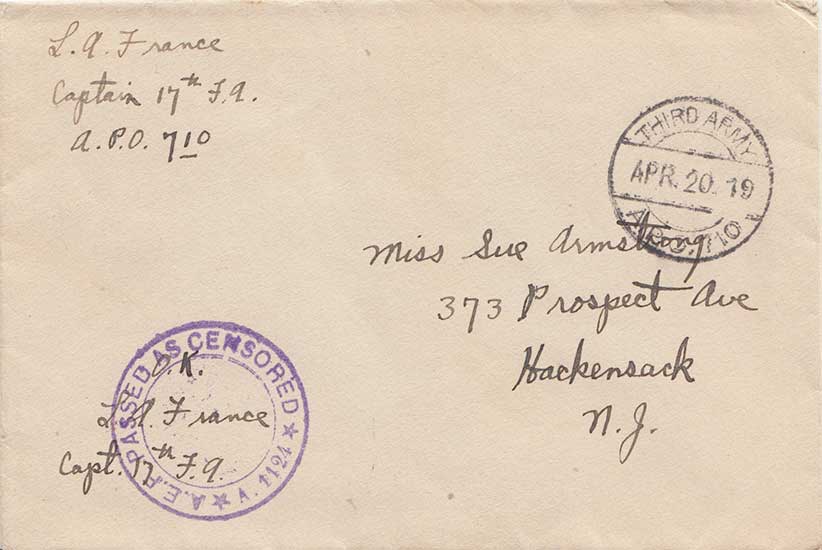 L. A. France
Captain 17th F.A.
A.P.O. 710
THIRD ARMY
APR. 20. 19
A.P.O. 710
Miss Sue Armstrong
373 Prospect Ave
Hackensack
N. J.
A.E.F. PASSED AS CENSORED
O.K.
L. A. France
Capt. 17th F.A.
A. 1124